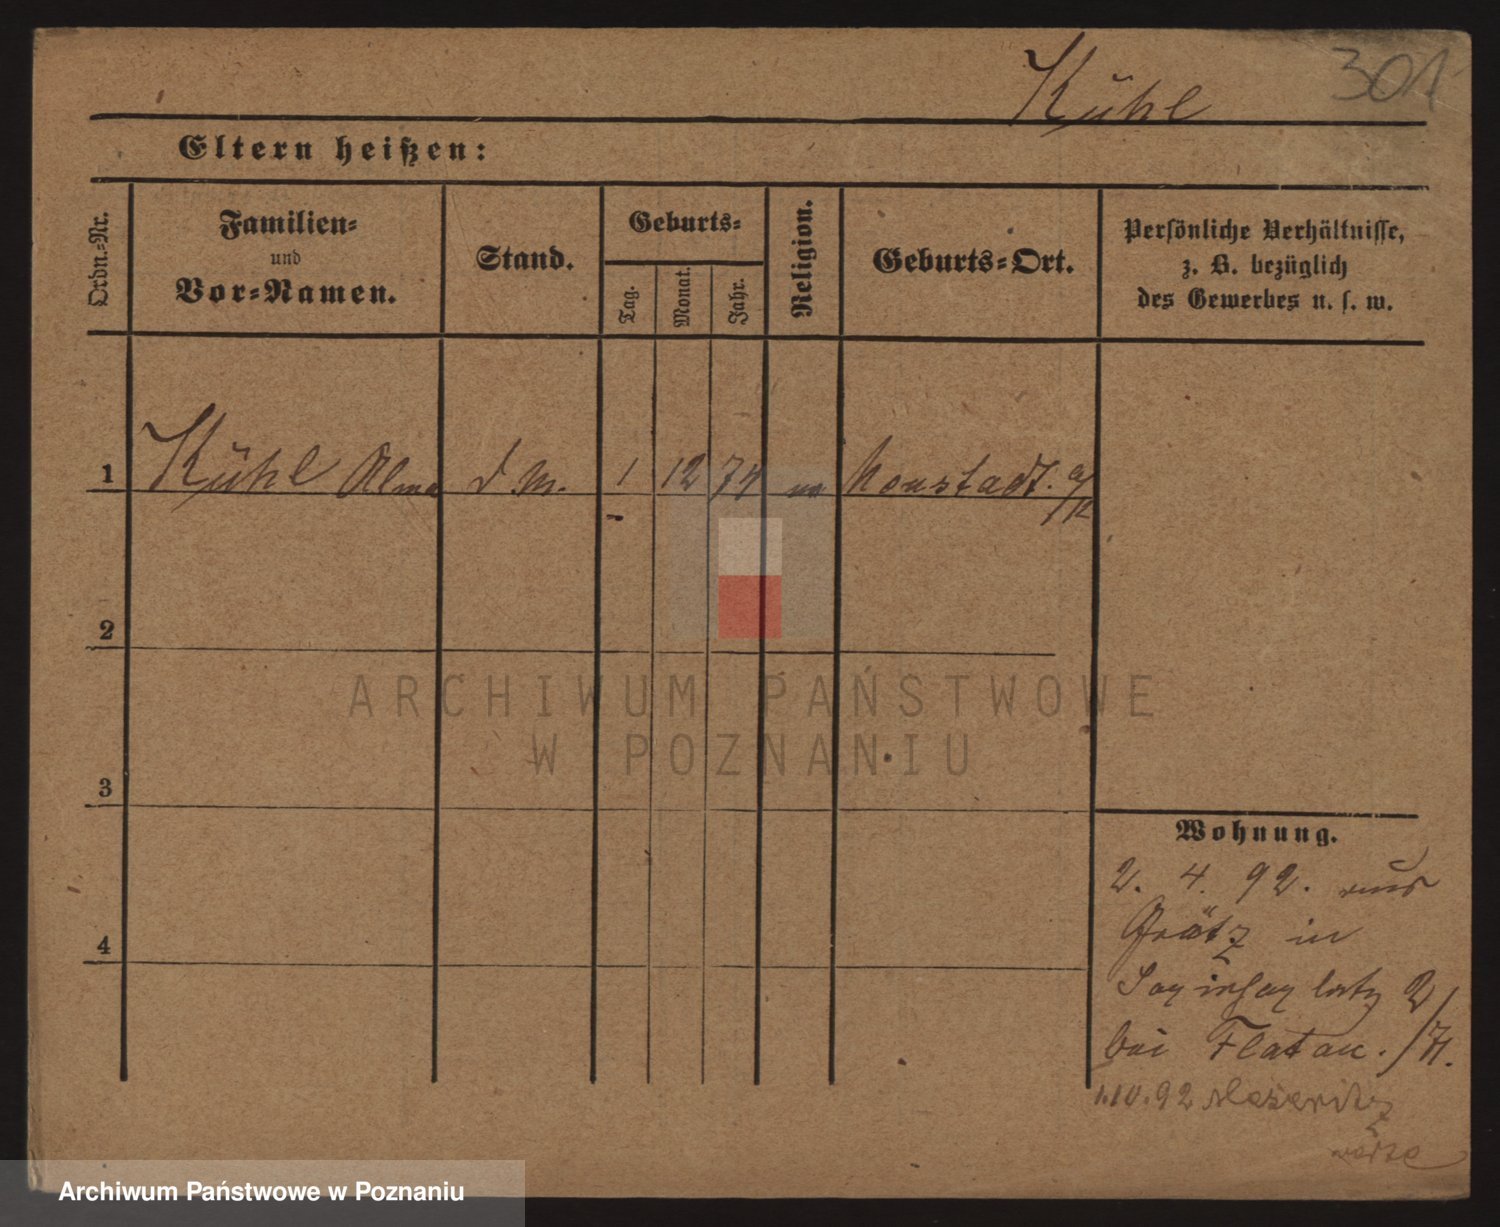 Kühl 301
Eltern heißen:
Ordn.-Nr.
Familien-
und
Vor-Namen.
Stand.
Geburts-
Tag.
Monat.
Jahr.
Religion.
Geburts-Ort.
Persönliche Verhältnisse,
z. B. bezüglich
des Gewerbes u. s. w.
1 Kühl Alma d. M. 1 12 74
2
3
4
ARCHIWUM PAŃSTWOWE
W POZNANIU
Wohnung.
2. 4. 92. aus
Grätz in
Sapiehaplatz 2
bei Flatau.
1.10.92 Meseritz
Archiwum Państwowe w Poznaniu